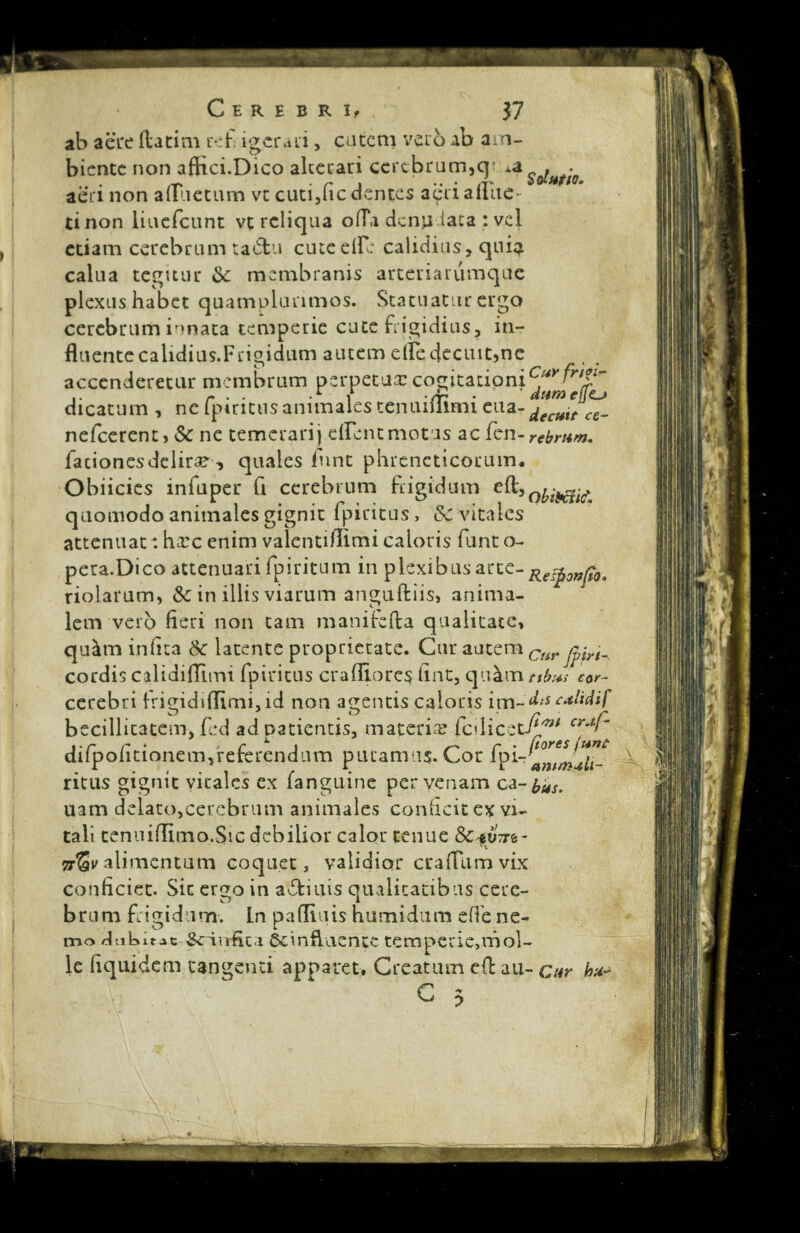 CEREBRI, 37
ab aëre ſtatim refrigerari, cutem verò ab am-
biente non affici. Dico alterari cerebrum, q
aëri non aſſuetum vt cuti, ſic dentes aëri aſſue-
Solutio.
ti non liueſcunt vt reliqua oſſa denudata : vel
etiam cerebrum tactu cute eſſe calidius, quia
calua tegitur & membranis arteriarúmque
plexus habet quamplurimos. Statuatur ergo
cerebrum innata temperie cute frigidius, in-
fluente calidius. Frigidum autem eſſe decuit, ne
accenderetur membrum perpetuæ cogitationi
Cur frigi-
dicatum, ne ſpiritus animales tenuiſſimi eua-
dum eſſe
decuit ce-
neſcerent, & ne temerarij eſſent motus ac ſen-
rebrum.
ſationes deliræ, quales ſunt phreneticorum.
Obiicies inſuper ſi cerebrum frigidum eſt,
Obiectio.
quomodo animales gignit ſpiritus, & vitales
attenuat : hæc enim valentiſſimi caloris ſunt o-
pera. Dico attenuari ſpiritum in plexibus arte-
Reſponſio.
riolarum, & in illis viarum anguſtiis, anima-
lem verò fieri non tam manifeſta qualitate,
quàm inſita & latente proprietate. Cur autem
Cur ſpiri-
cordis calidiſſimi ſpiritus craſſiores ſint, quàm
tibus cor-
cerebri frigidiſſimi, id non agentis caloris im-
dis calidiſ
becillitatem, ſed ad patientis, materiæ ſcilicet
ſimi craſ-
diſpoſitionem, referendum putamus. Cor ſpi-
ſiores ſunt
animali-
ritus gignit vitales ex ſanguine per venam ca-
bus.
uam delato, cerebrum animales conficit ex vi-
tali tenuiſſimo. Sic debilior calor tenue & εὔπε-
πτον alimentum coquet, validior craſſum vix
conficiet. Sit ergo in actiuis qualitatibus cere-
brum frigidum. In paſſiuis humidum eſſe ne-
mo dubitat & inſita & influente temperie, mol-
le ſiquidem tangenti apparet. Creatum eſt au-
Cur hu-
C 3